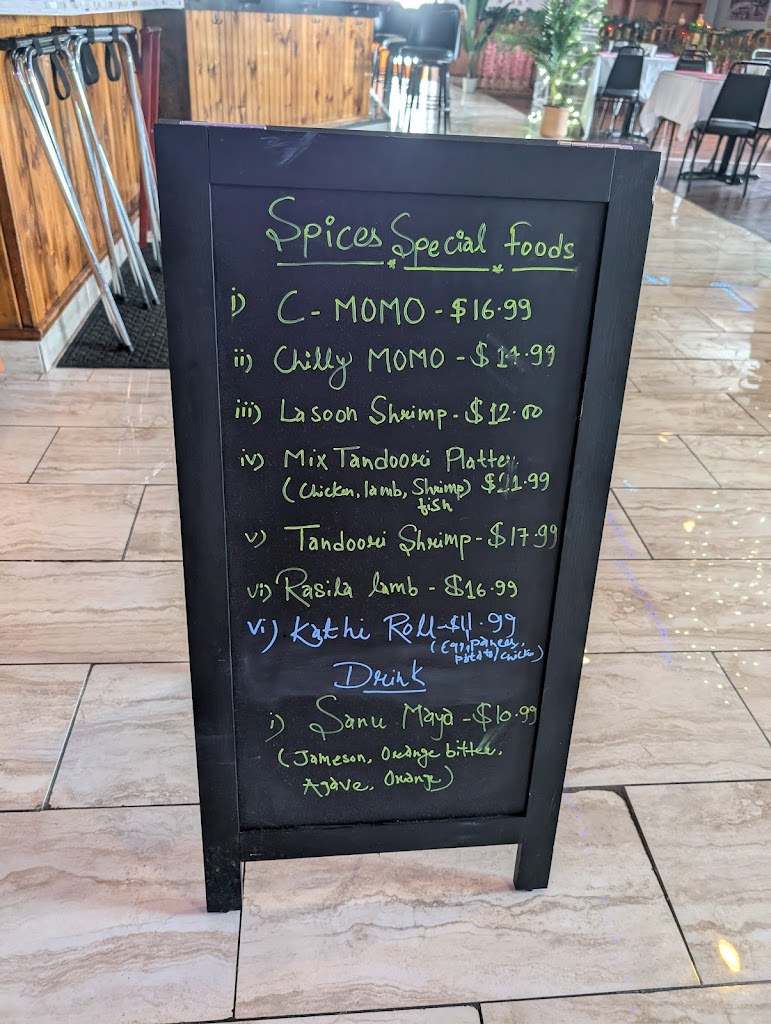 Spices Special Foods
i) C - MOMO - $16.99
ii) Chilly MOMO - $14.99
iii) Lasoon Shrimp - $12.00
iv) Mix Tandoori Platter
(Chicken, lamb, Shrimp) $21.99
fish
v) Tandoori Shrimp - $17.99
vi) Rasila lamb - $16.99
vi) Kathi Roll - $11.99
(Egg, paneer,
potato/chicken)
Drink
i) Sanu Maya - $10.99
(Jameson, Orange bitter,
Agave, Orange)